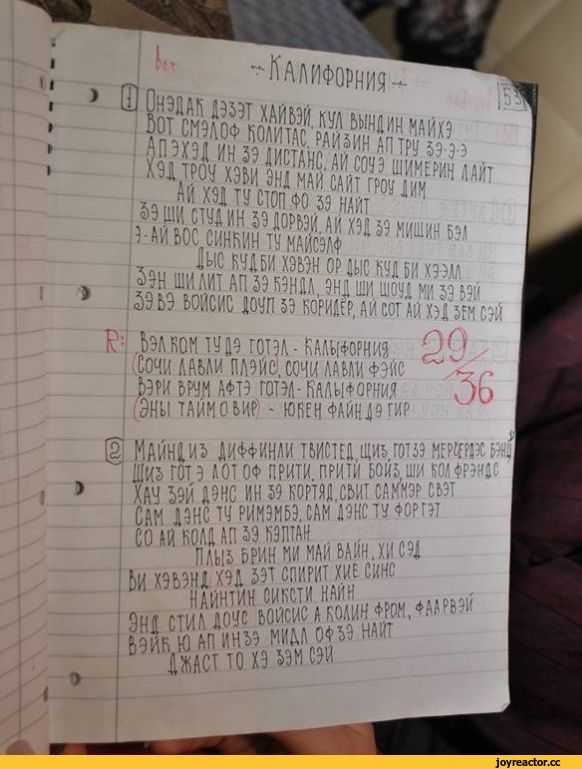 - КАЛИФОРНИЯ -
53
1 ОНЭДАК ДЭЗЭТ ХАЙВЭЙ, КУЛ ВЫНДИН МАЙХЭ
ВОТ СМЭЛ ОФ КОЛИТАС, РАЙЗИН АП ТРУ ЗЭ-Э-Э
АП ЭХЭД ИН ЗЭ ДИСТАНС, АЙ СОУЭ ШИМЕРИН ЛАЙТ
ХЭД ТРОУ ХЭВИ ЭНД МАЙ САЙТ ГРОУ ДИМ
АЙ ХЭД ТУ СТОП ФО ЗЭ НАЙТ
ЗЭ ШИ СТУД ИН ЗЭ ДОРВЭЙ, АЙ ХЭД ЗЭ МИШИН БЭЛ
Э-АЙ ВОС СИНКИН ТУ МАЙСЭЛФ
ДЫС КУД БИ ХЭВЭН ОР ДЫС КУД БИ ХЭЭЛЛ
ЗЭН ШИ ЛИТ АП ЗЭ КЭНДЛ, ЭНД ШИ ШОУД МИ ЗЭ ВЭЙ
ЗЭ ВЭ ВОЙСИС ДОУП ЗЭ КОРИДЕР, АЙ СОТ АЙ ХЭД ЗЕМ СЭЙ
R: ВЭЛКОМ ТУ ДЭ ГОТЭЛ - КАЛЫФОРНИЯ
29/36
(СОЧИ ЛАВЛИ ПЛЭЙС), СОЧИ ЛАВЛИ ФЭЙС
ВЭРИ ВРУМ АФТЭ ГОТЭЛ - КАЛЫФОРНИЯ
(ЭНЫ ТАЙМ О ВИР) - ЮКЕН ФАЙН ДЭ ГИР
2 МАЙНД ИЗ ДИФФИНЛИ ТВИСТЕД, ШИЗ ГОТ ЗЭ МЕРСЕРДЭС БЭНД
ШИЗ ГОТ Э ЛОТ ОФ ПРИТИ, ПРИТИ БОЙЗ, ШИ КОЛ ФРЭНДС
ХАУ ЗЭЙ ДЭНС ИН ЗЭ КОРТЯД, СВИТ САММЭР СВЭТ
САМ ДЭНС ТУ РИМЭМБЭ, САМ ДЭНС ТУ ФОРГЭТ
СО АЙ КОЛД АП ЗЭ КЭПТАН
ПЛЫЗ БРИН МИ МАЙ ВАЙН, ХИ СЭД
ВИ ХЭВЭНД ХЭД ЗЭТ СПИРИТ ХИЕ СИНС
НАЙНТИН СИКСТИ НАЙН
ЭНД СТИЛ ДОУС ВОЙСИС А КОЛИН ФРОМ, ФААРВЭЙ
ВЭЙК Ю АП ИН ЗЭ МИДЛ ОФ ЗЭ НАЙТ
ДЖАСТ ТО ХЭ ЗЭМ СЭЙ
joyreactor.cc